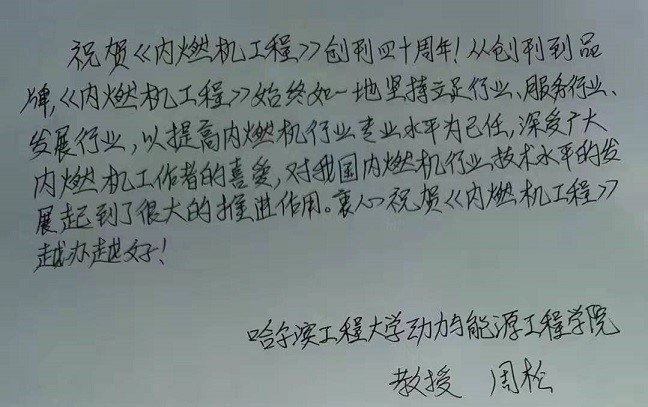 祝贺《内燃机工程》创刊四十周年！从创刊到品
牌，《内燃机工程》始终如一地坚持立足行业、服务行业、
发展行业，以提高内燃机行业专业水平为己任，深受广大
内燃机工作者的喜爱，对我国内燃机行业技术水平的发
展起到了很大的推进作用。衷心祝贺《内燃机工程》
越办越好！
哈尔滨工程大学动力与能源工程学院
教授 周松